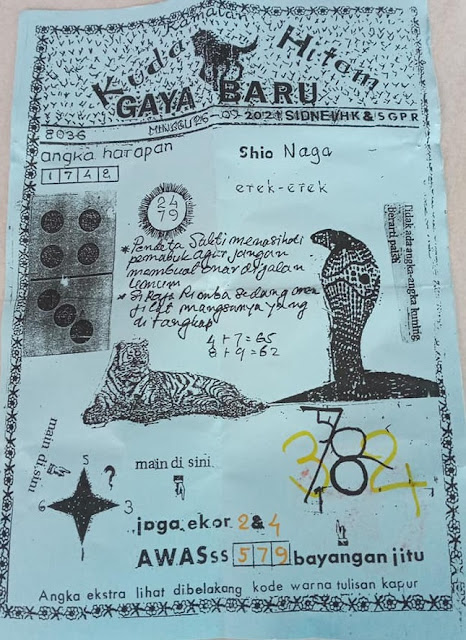 Ramalan
Kuda Hitam
GAYA BARU
MINGGU 26-09-2021 SIDNEI/HK & SGPR
8036
angka harapan
1 7 4 2
Shio Naga
erek-erek
24
79
* Pendata Sakti menasihati
pemabuk agar jangan
membuat onar di jalan
umum
* Si Raja Rimba sedang
mangsanya yang
di tangkap
4 + 7 = 65
8 + 9 = 62
Tidak ada angka-angka kuning
berarti palsu
3 7 8 2 4
main di sini
main di sini.
5
?
6
3
jaga ekor 2 & 4
AWASss 5 7 9 bayangan jitu
Angka ekstra lihat dibelakang kode warna tulisan kapur